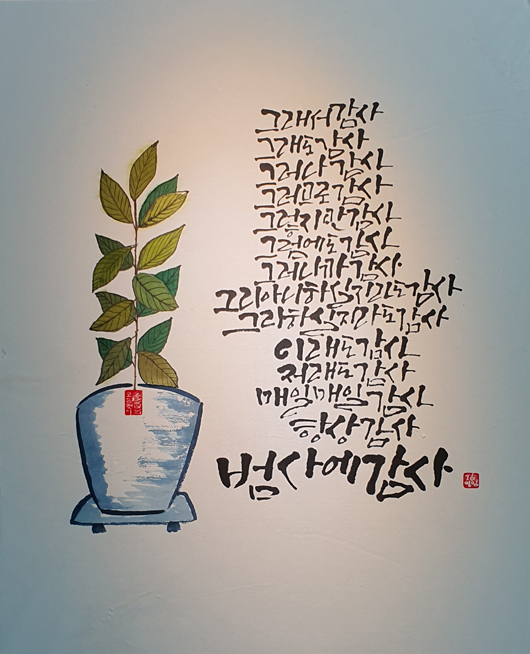 그래서감사
그래도감사
그러나 감사
그러므로감사
그렇지만감사
그럼에도감사
그러니까 감사
그리아니하실지라도감사
그리하실지라도감사
이래도감사
저래도감사
매일매일감사
항상감사
범사에감사